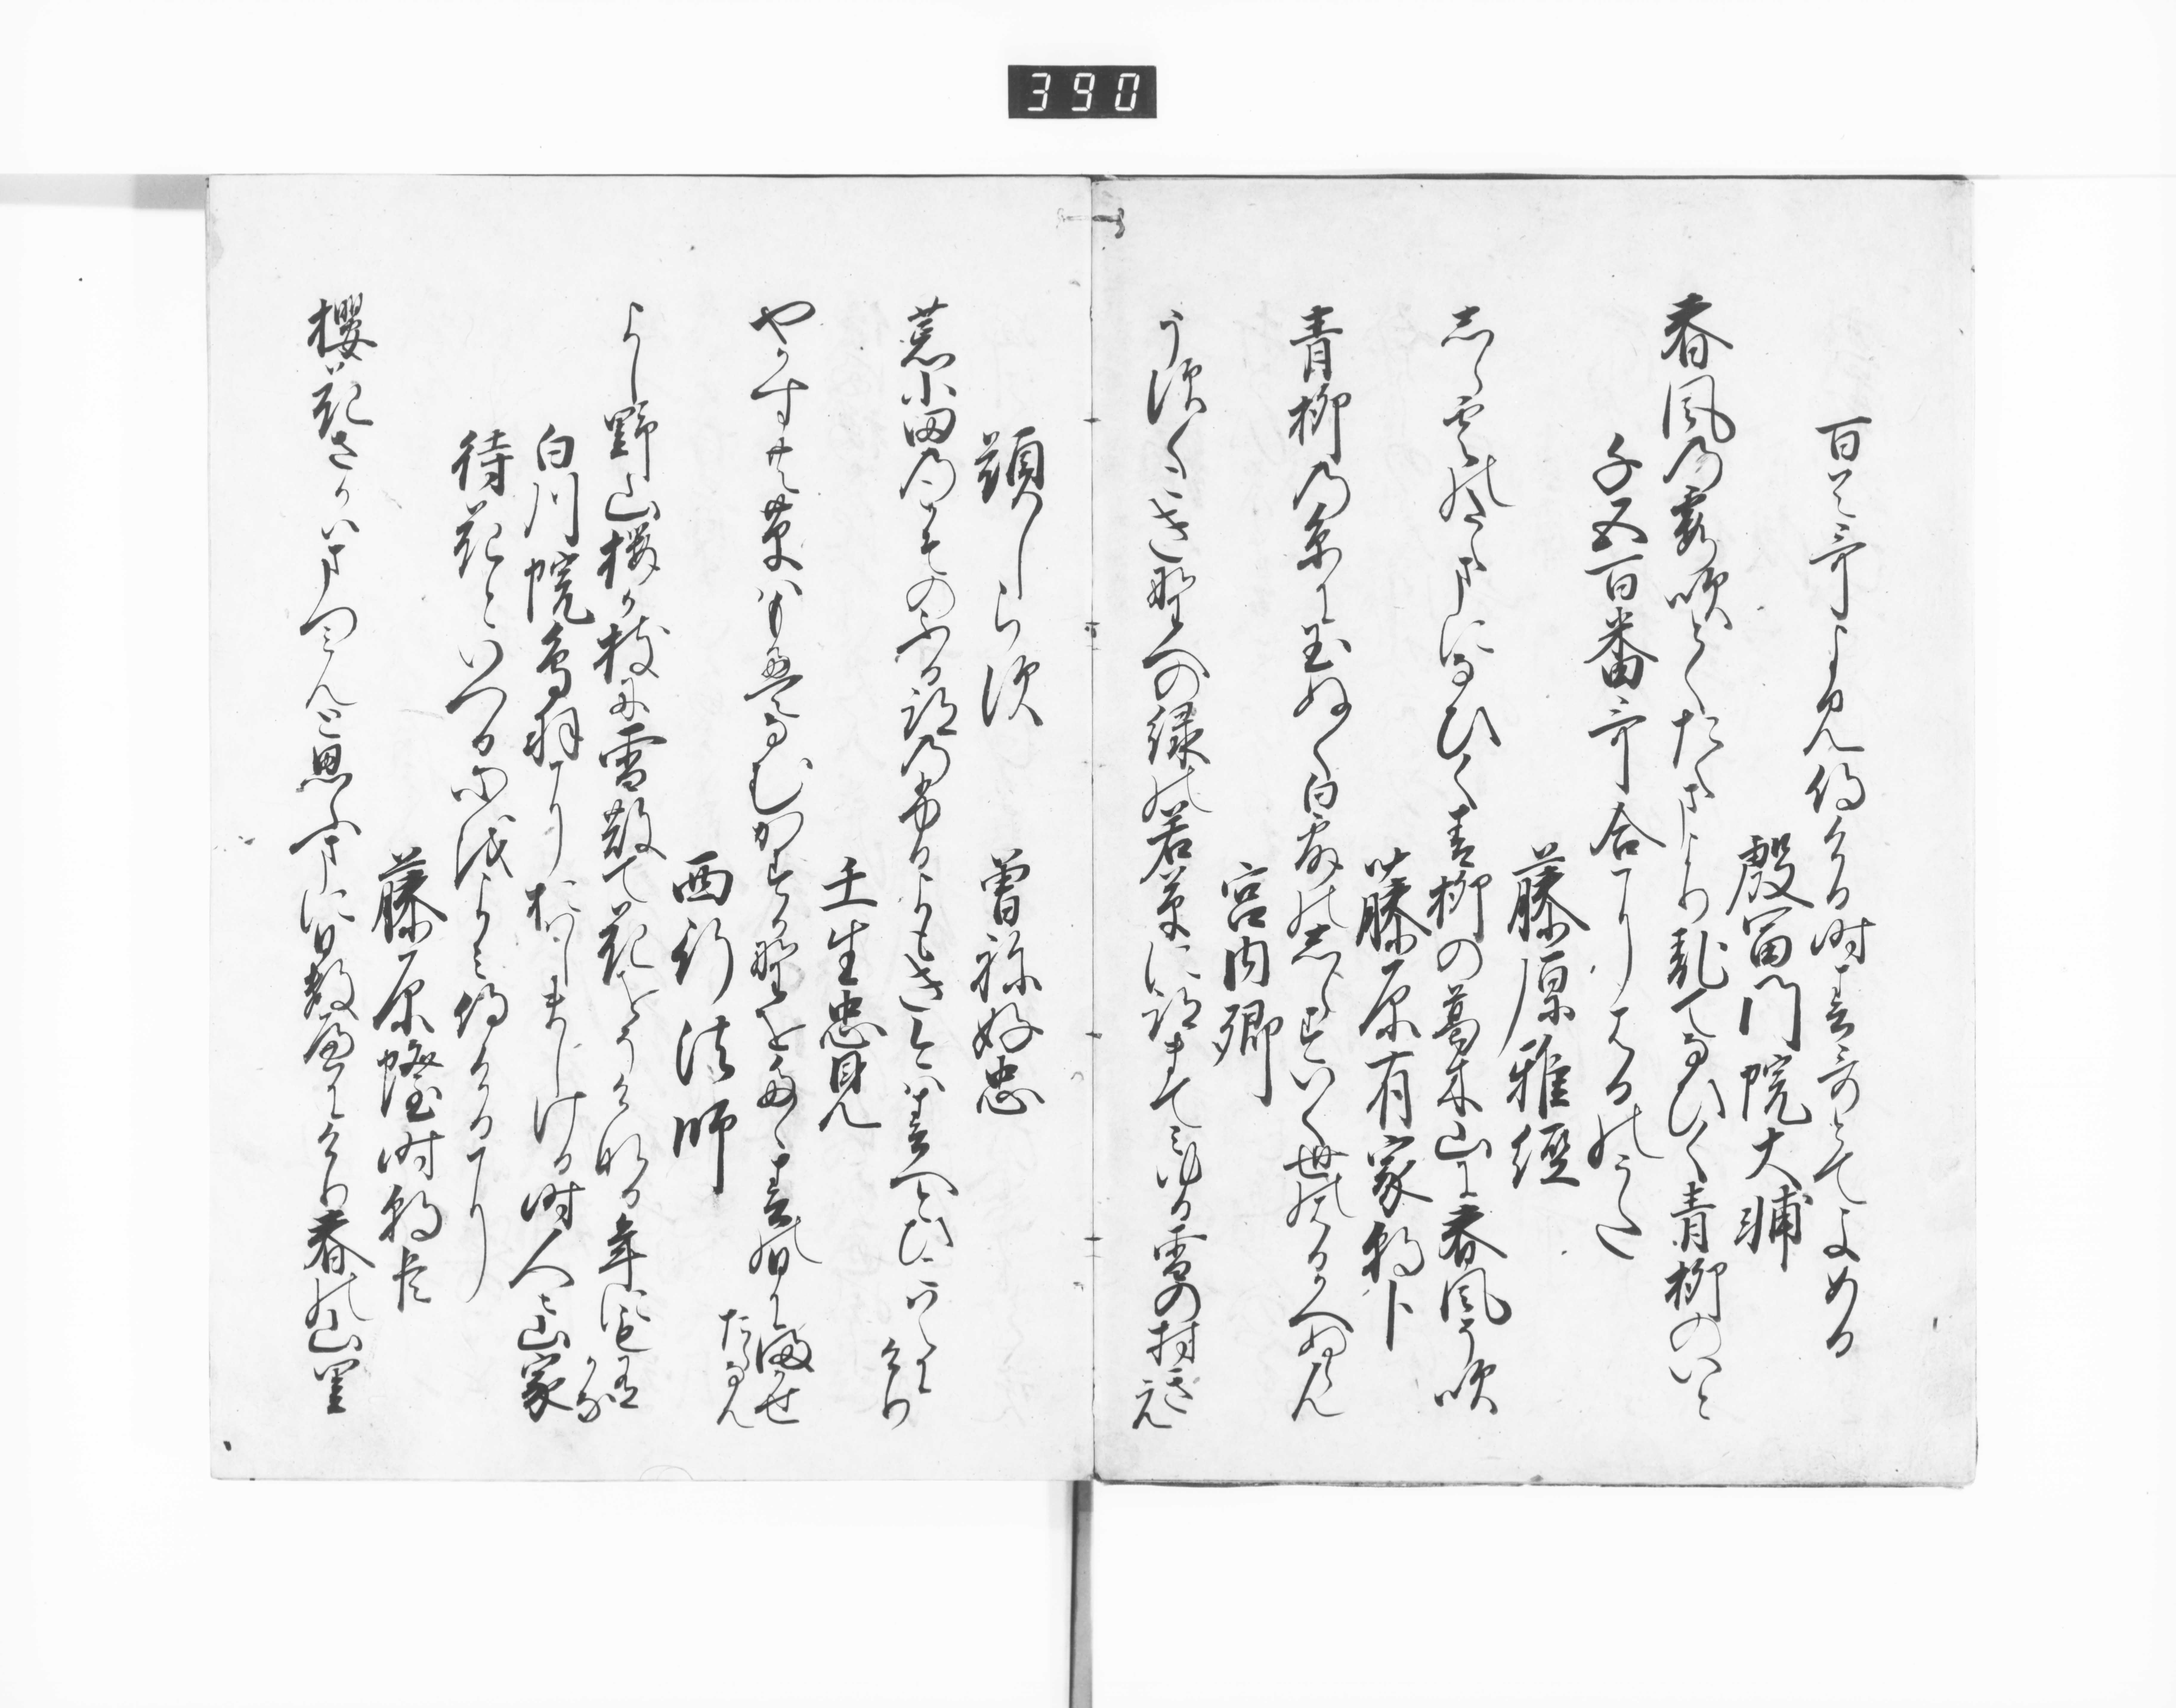 390
百首哥よみ侍ける時春哥とてよめる
殷冨門院大輔
春風乃霞吹とくたえまより乱てなひく青柳のいと
千五百番哥合にはるのうた
藤原雅經
志ら雲のたえまになひく青柳の葛木山に春風そ吹
藤原有家朝臣
青柳乃糸に玉ぬく白露の志らすいく世の春かへぬらん
宮内卿
うすくこき野への緑の若草に跡まてみゆる雪の村きえ
題しらす
曽祢好忠
荒小田のこそのふる跡乃ふるよもき今は春へとひこはえにけり
壬生忠見
やかすとも草はもえなむかすか野をたゝ春の日に満せたらなん
西行法師
よし野山櫻か枝に雪散て花をそけなる年にも有かな
白川院鳥羽におはしましける時人々山家
待花といへる心をよみ侍けるに
藤原隆時朝臣
櫻花さかはまつみんと思ふまに日數へにけり春の山里